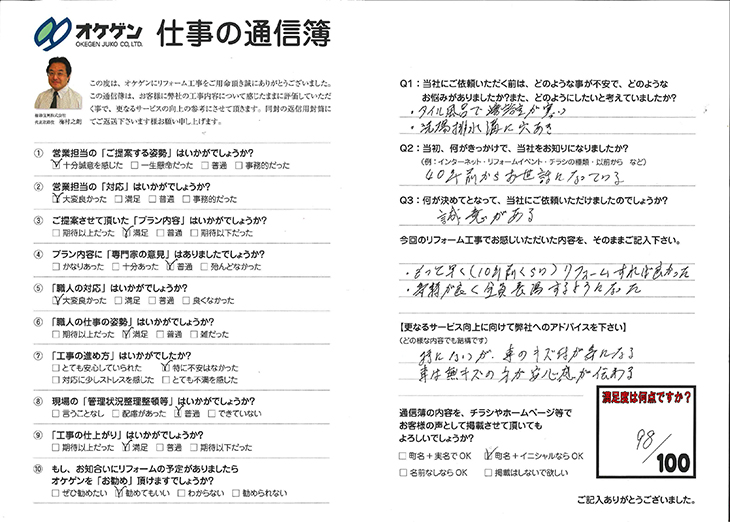 オケゲン
OKEGEN JUKO CO, LTD.
仕事の通信簿
この度は、オケゲンにリフォーム工事をご用命頂き誠にありがとうございました。
この通信簿は、お客様に弊社の工事内容について感じたままに評価していただ
く事で、更なるサービスの向上の参考にさせて頂きます。同封の返信用封筒に
てご返送下さいます様お願い申し上げます。
① 営業担当の「ご提案する姿勢」はいかがでしょうか?
☑十分誠意を感じた □一生懸命だった □普通 □事務的だった
② 営業担当の「対応」はいかがでしょうか?
☑大変良かった □満足 □普通 □事務的だった
③ ご提案させて頂いた「プラン内容」はいかがでしょうか?
□期待以上だった ☑満足 □普通 □期待以下だった
④ プラン内容に「専門家の意見」はありましたでしょうか?
□かなりあった □十分あった ☑普通 □殆んどなかった
⑤ 「職人の対応」はいかがでしょうか?
☑大変良かった □満足 □普通 □良くなかった
⑥ 「職人の仕事の姿勢」はいかがでしょうか?
□期待以上だった ☑満足 □普通 □雑だった
⑦ 「工事の進め方」はいかがでしたか?
□とても安心していられた ☑特に不安はなかった
□対応に少しストレスを感じた □とても不満を感じた
⑧ 現場の「管理状況整理整頓等」はいかがでしょうか?
□言うことなし □配慮があった ☑普通 □できていない
⑨ 「工事の仕上がり」はいかがでしょうか?
□期待以上だった ☑満足 □普通 □期待以下だった
⑩ もし、お知合いにリフォームの予定がありましたら
オケゲンを「お勧め」頂けますでしょうか?
□ぜひ勧めたい ☑勧めてもいい □わからない □勧められない
Q1:当社にご依頼いただく前は、どのような事が不安で、どのような
お悩みがありましたか?また、どのようにしたいと考えていましたか?
・タイル風呂で
・洗場排水溝に穴あき
Q2:当初、何がきっかけで、当社をお知りになりましたか?
(例:インターネット・リフォームイベント・チラシの種類・以前から など)
40年前からお世話になっている
Q3:何が決めてとなって、当社にご依頼いただけましたのでしょうか?
誠意がある
今回のリフォーム工事でお感じいただいた内容を、そのままご記入下さい。
・もっと早く(10年前くらい)リフォームすれば良かった
・気持が良く全員長湯するようになった
【更なるサービス向上に向けて弊社へのアドバイスを下さい】
(どの様な内容でも結構です)
特にないが、車のキズ付が気になる
車は無キズの方が安心感が伝わる
通信簿の内容を、チラシやホームページ等で
お客様の声として掲載させて頂いても
よろしいでしょうか?
□町名+実名でOK ☑町名+イニシャルならOK
□名前なしならOK □掲載はしないで欲しい
満足度は何点ですか?
98/100
ご記入ありがとうございました。